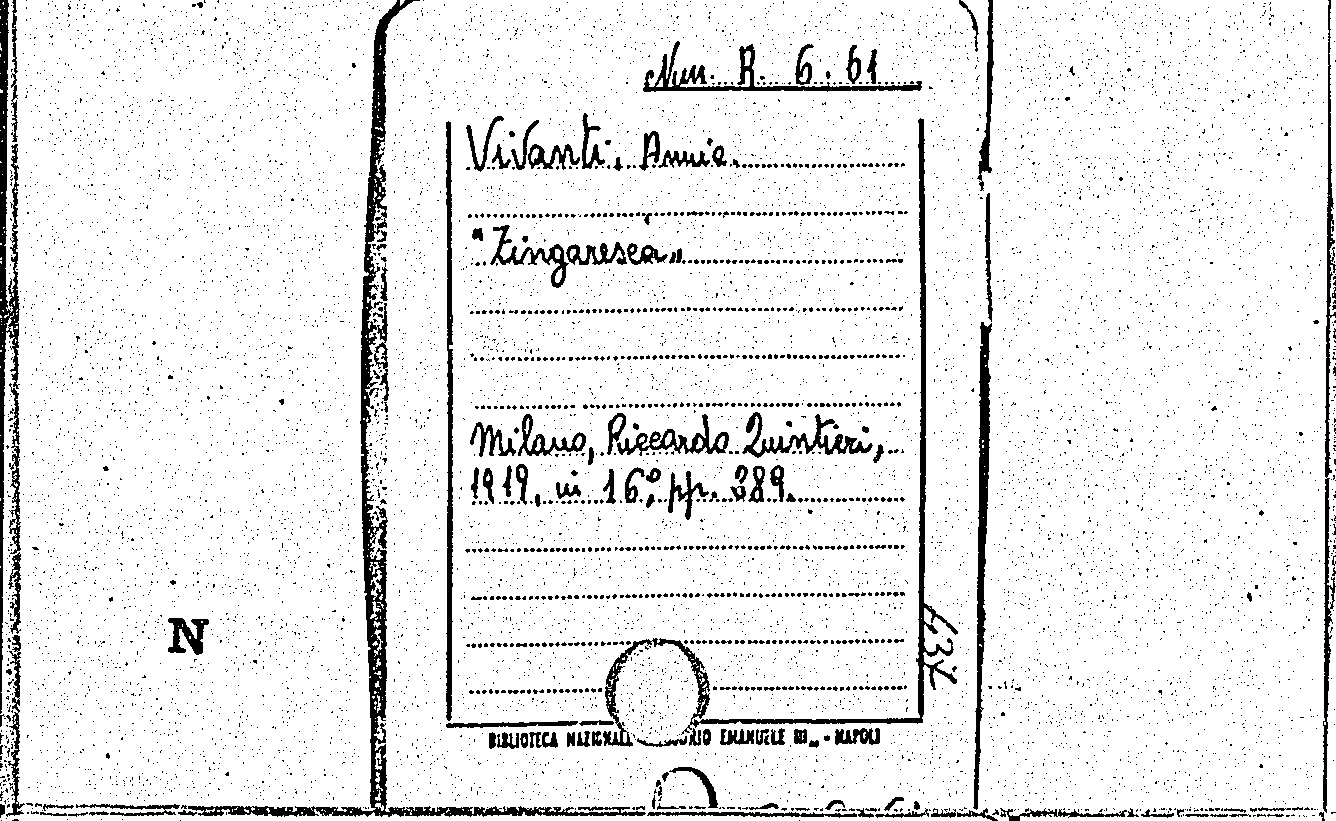 Nun. R. 6. 61
Vivanti, Annie.
"Zingaresca"
Milano, Riccardo Quintieri,
1919, in 16°, pp. 389.
N
BIBLIOTECA EMANUELE III„ - NAPOLI